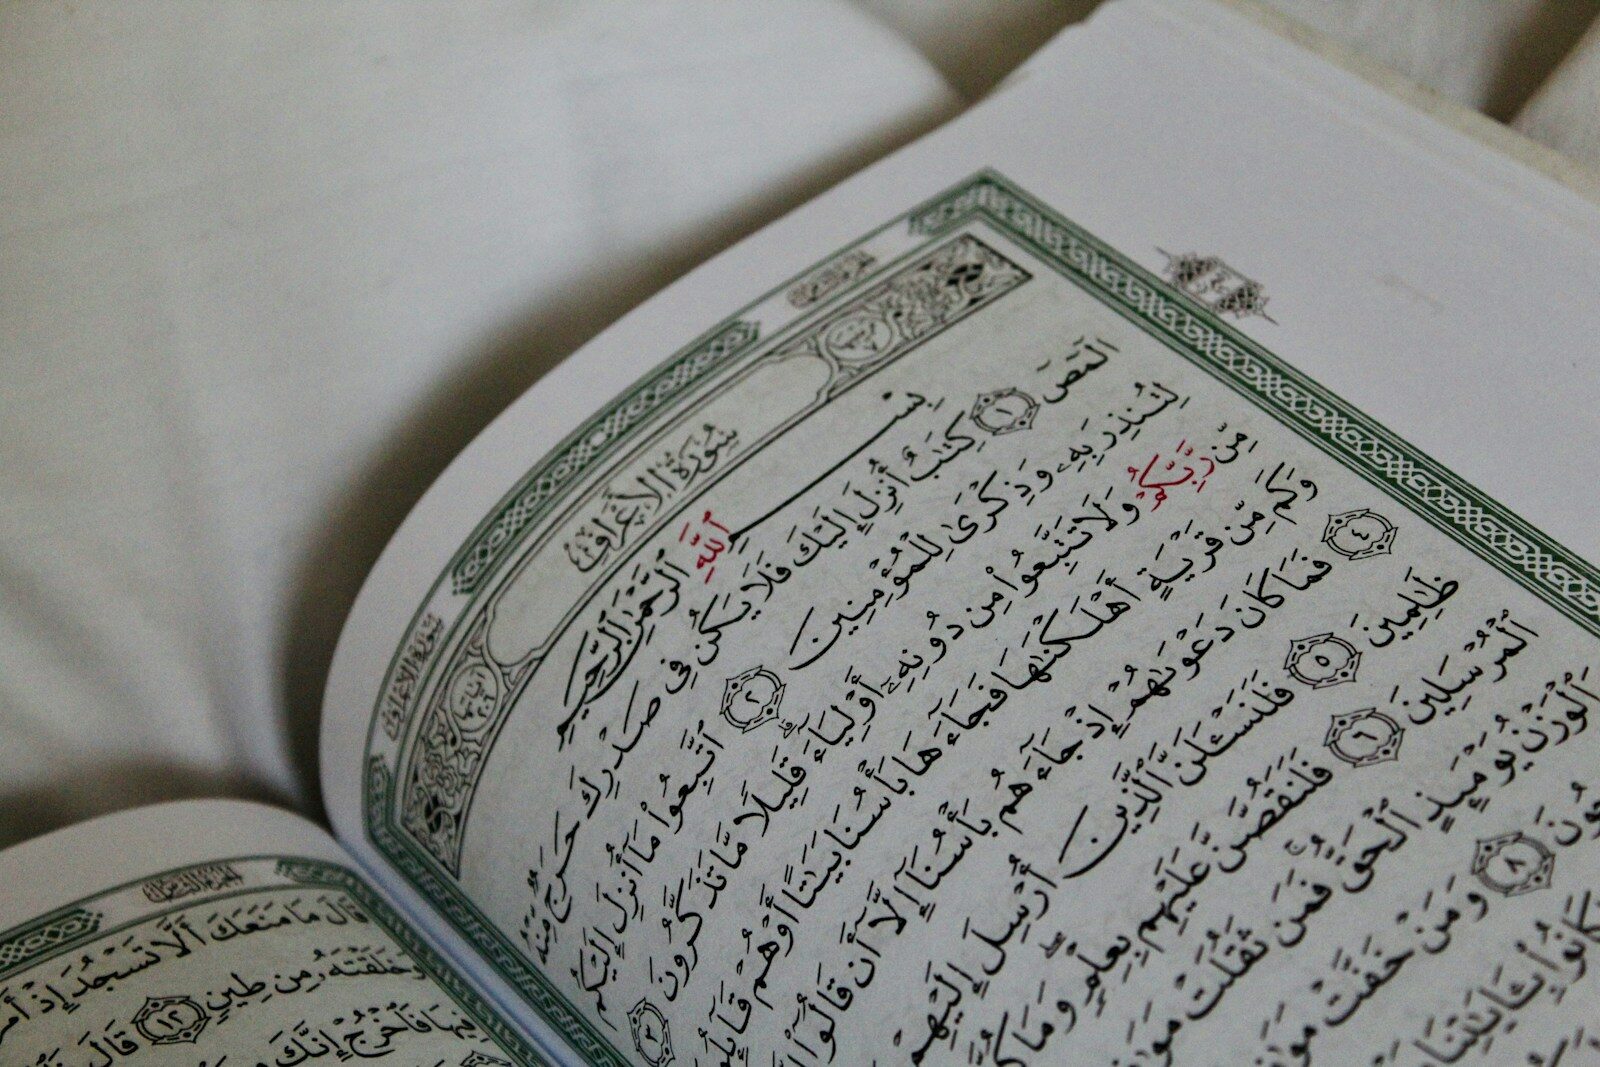 سُورَةُ الأَعْرَافِ
سُورَةُ الأَعْرَافِ
آيَاتُهَا ٢٠٦
بِسْمِ ٱللَّهِ ٱلرَّحْمَٰنِ ٱلرَّحِيمِ
الٓمٓصٓ ١ كِتَٰبٌ أُنزِلَ إِلَيْكَ فَلَا يَكُن فِى صَدْرِكَ حَرَجٌ مِّنْهُ
لِتُنذِرَ بِهِۦ وَذِكْرَىٰ لِلْمُؤْمِنِينَ ٢ ٱتَّبِعُوا۟ مَآ أُنزِلَ إِلَيْكُم
مِّن رَّبِّكُمْ وَلَا تَتَّبِعُوا۟ مِن دُونِهِۦٓ أَوْلِيَآءَ ۗ قَلِيلًا مَّا تَذَكَّرُونَ ٣
وَكَم مِّن قَرْيَةٍ أَهْلَكْنَٰهَا فَجَآءَهَا بَأْسُنَا بَيَٰتًا أَوْ هُمْ
٤ فَمَا كَانَ دَعْوَىٰهُمْ إِذْ جَآءَهُم بَأْسُنَآ إِلَّآ أَن قَالُوٓا۟
ظَٰلِمِينَ ٥ فَلَنَسْـَٔلَنَّ ٱلَّذِينَ أُرْسِلَ إِلَيْهِمْ
ٱلْمُرْسَلِينَ ٦ فَلَنَقُصَّنَّ عَلَيْهِم بِعِلْمٍ ۖ وَمَا
ٱلْوَزْنُ يَوْمَئِذٍ ٱلْحَقُّ ۚ فَمَن ثَقُلَتْ
٨ وَمَنْ خَفَّتْ
كَانُوا۟ بِـَٔايَٰتِنَا
قَالَ مَا مَنَعَكَ أَلَّا تَسْجُدَ إِذْ
وَخَلَقْتَهُۥ مِن طِينٍ ١٢ قَالَ
فَٱخْرُجْ إِنَّكَ